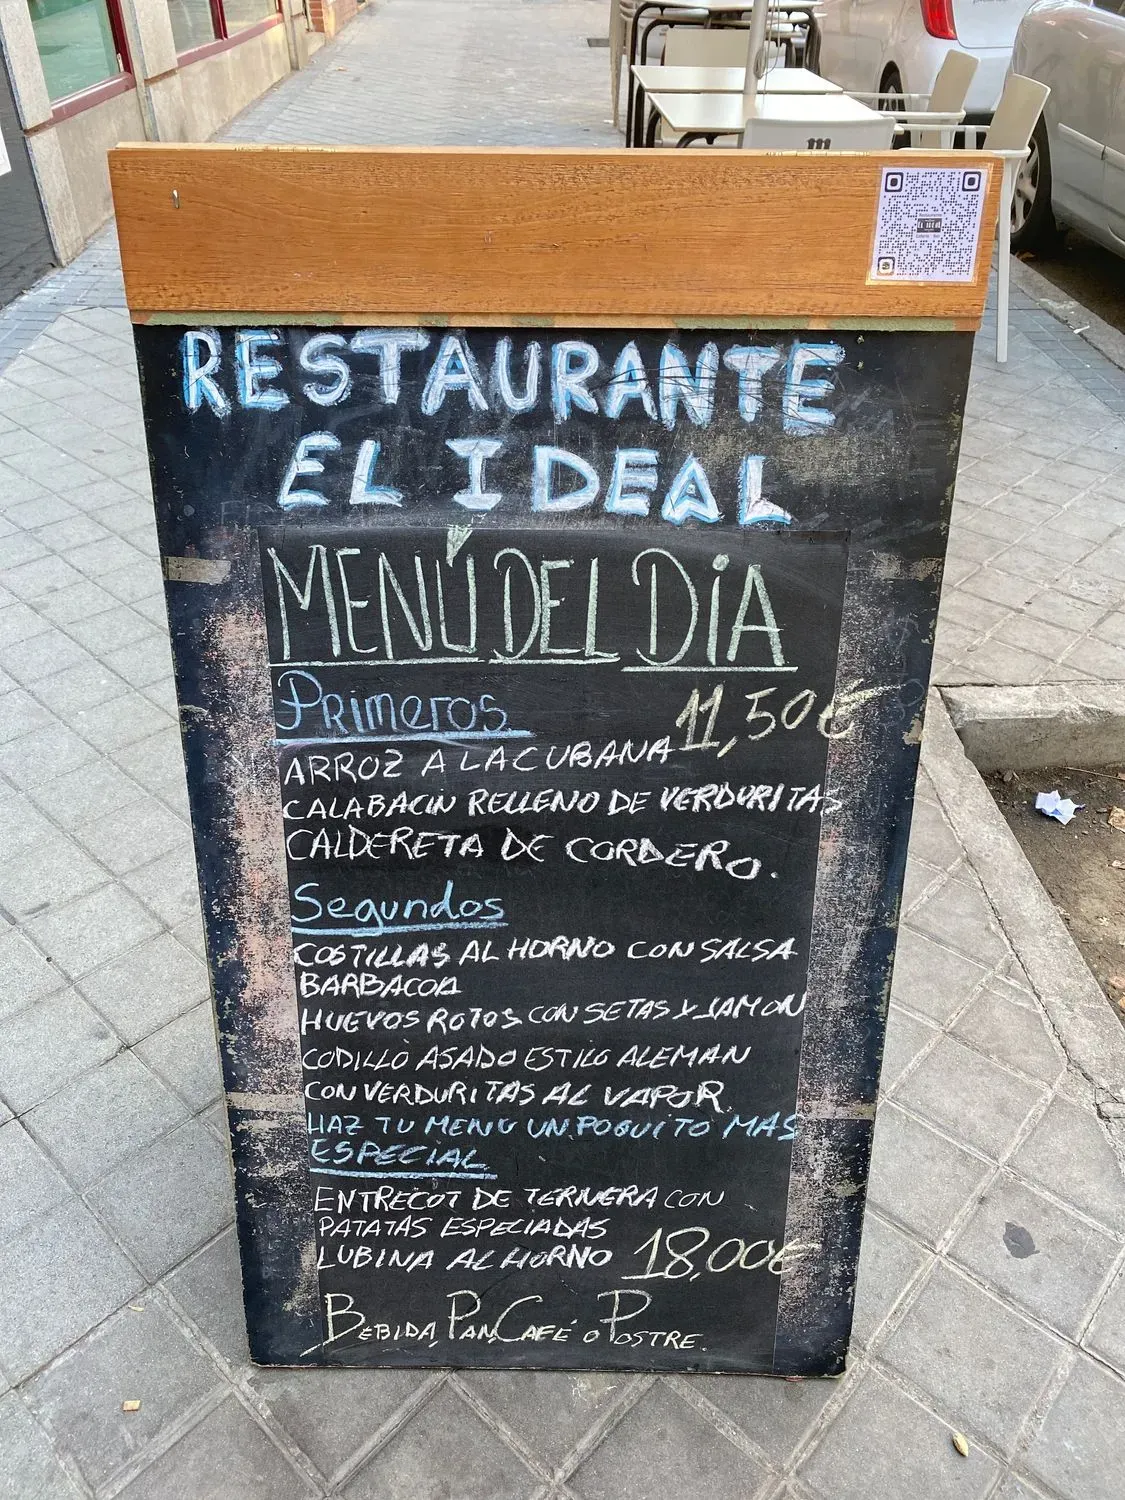 RESTAURANTE
EL IDEAL
MENÚ DEL DÍA
Primeros 11,50€
ARROZ A LA CUBANA
CALABACIN RELLENO DE VERDURITAS
CALDERETA DE CORDERO.
Segundos
COSTILLAS AL HORNO CON SALSA
BARBACOA
HUEVOS ROTOS CON SETAS Y JAMON
CODILLO ASADO ESTILO ALEMAN
CON VERDURITAS AL VAPOR
HAZ TU MENU UN POQUITO MAS
ESPECIAL
ENTRECOT DE TERNERA CON
PATATAS ESPECIADAS
LUBINA AL HORNO 18,00€
BEBIDA, PAN, CAFÉ O POSTRE.